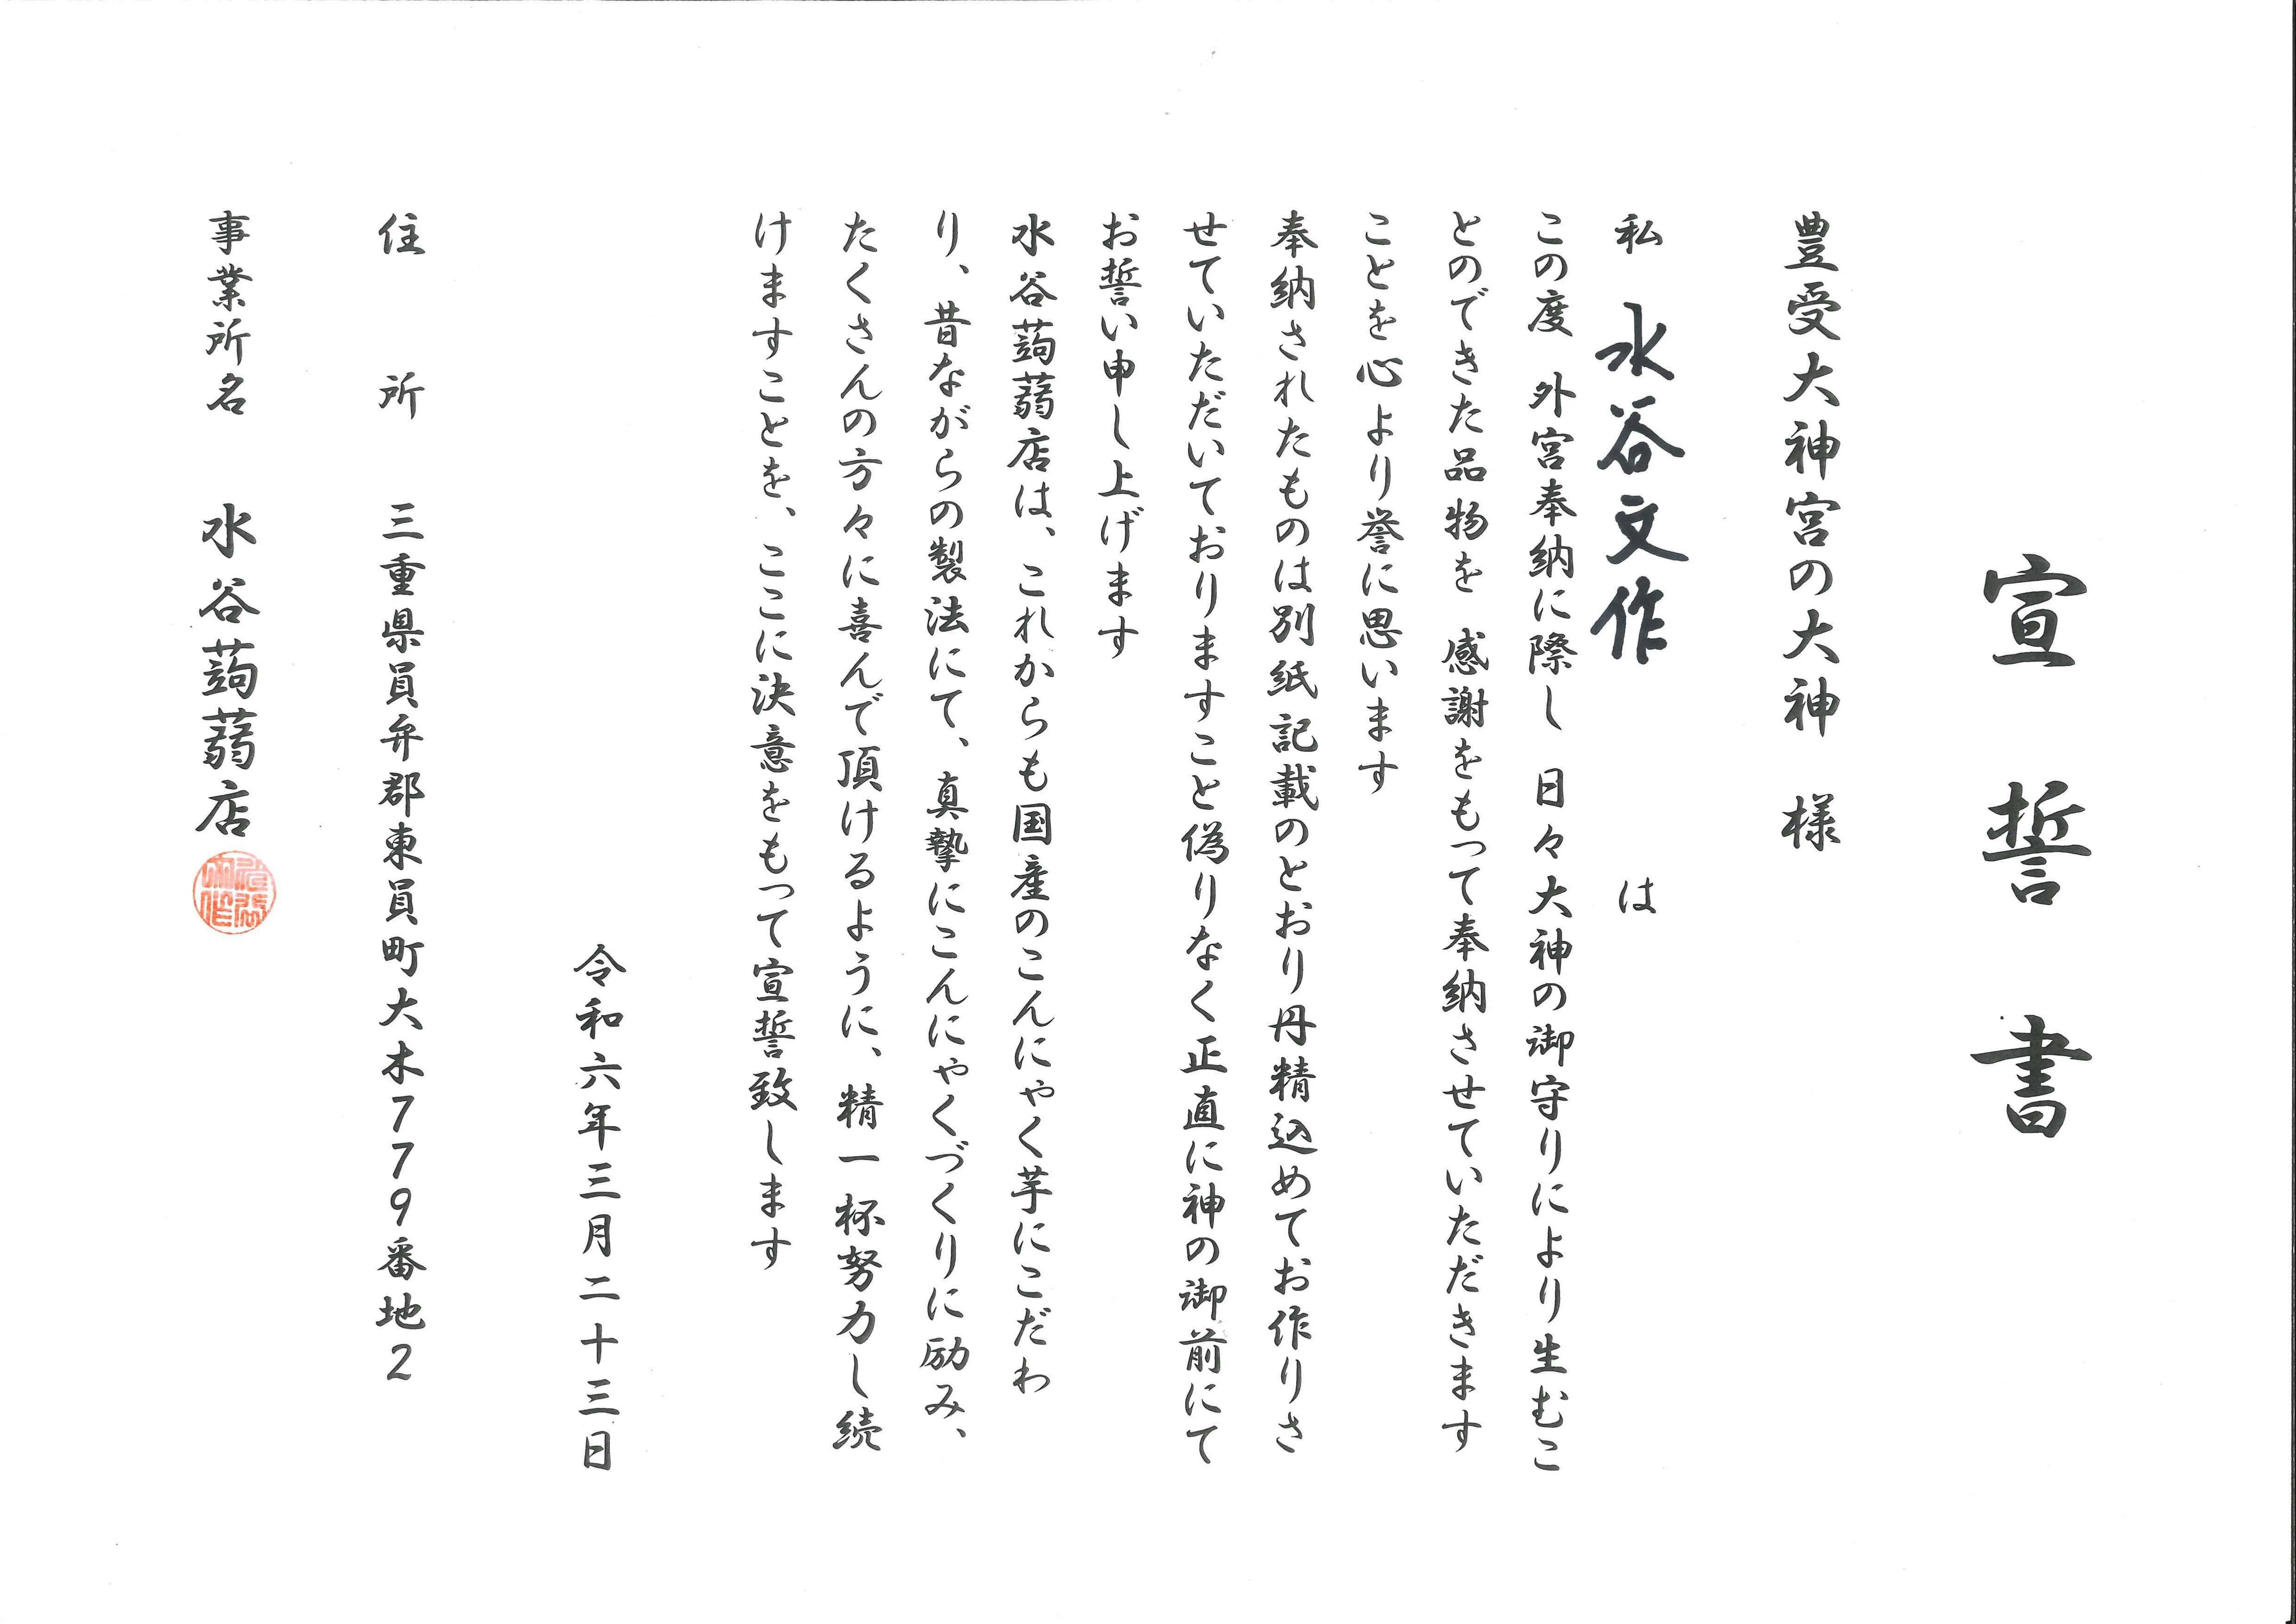 宣誓書
豊受大神宮の大神 様
私 水谷文作 は
この度 外宮奉納に際し 日々大神の御守りにより生むこ
とのできた品物を 感謝をもって奉納させていただきます
ことを心より誉に思います
奉納されたものは別紙記載のとおり丹精込めてお作りさ
せていただいておりますこと偽りなく正直に神の御前にて
お誓い申し上げます
水谷蒟蒻店は、これからも国産のこんにゃく芋にこだわ
り、昔ながらの製法にて、真摯にこんにゃくづくりに励み、
たくさんの方々に喜んで頂けるように、精一杯努力し続
けますことを、ここに決意をもって宣誓致します
令和六年三月二十三日
住所 三重県員弁郡東員町大木779番地2
事業所名 水谷蒟蒻店